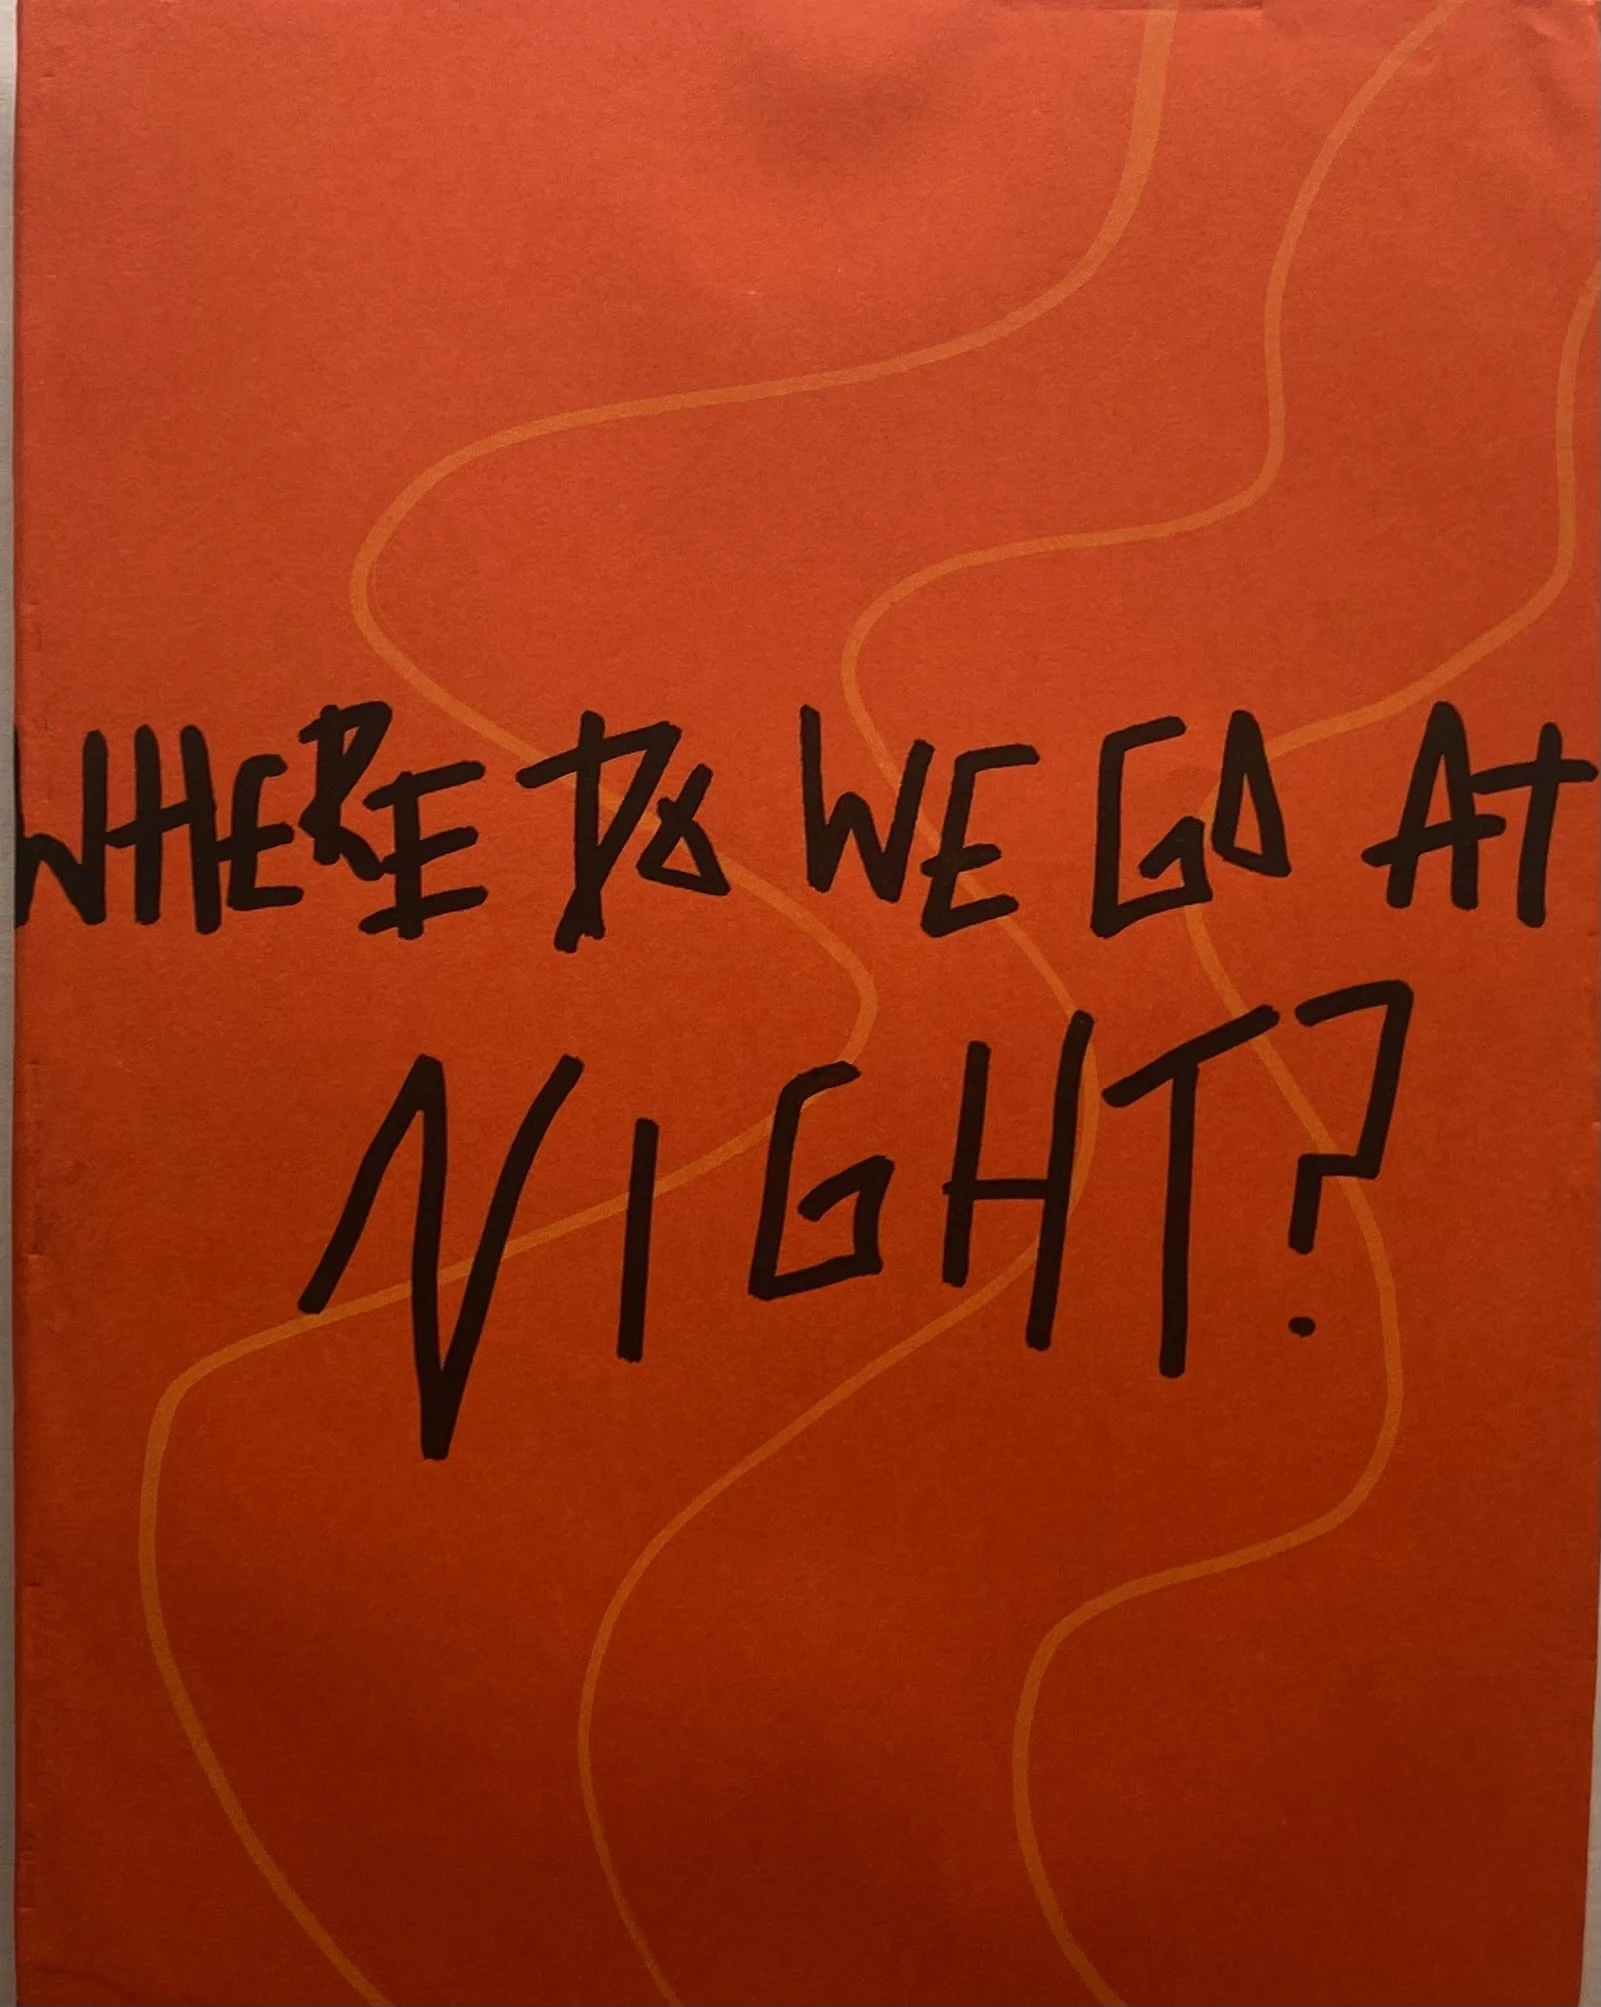 WHERE DO WE GO AT
NIGHT?